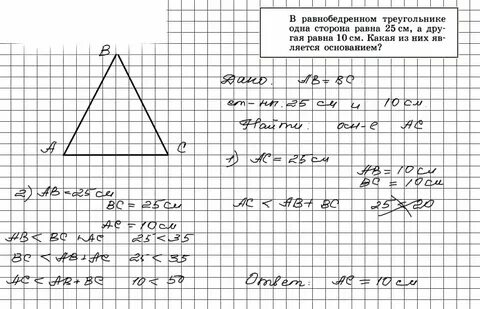 В равнобедренном треугольнике
одна сторона равна 25 см, а дру-
гая равна 10 см. Какая из них яв-
ляется основанием?
B
A
C
Дано: AB = BC
ст-ны. 25 см и 10 см
Найти: осн-е AC
1) AC = 25 см
AB = 10 см
BC = 10 см
AC < AB + BC 25 = 20
2) AB = 25 см
BC = 25 см
AC = 10 см
AB < BC + AC 25 < 35
BC < AB + AC 25 < 35
AC < AB + BC 10 < 50
Ответ: AC = 10 см